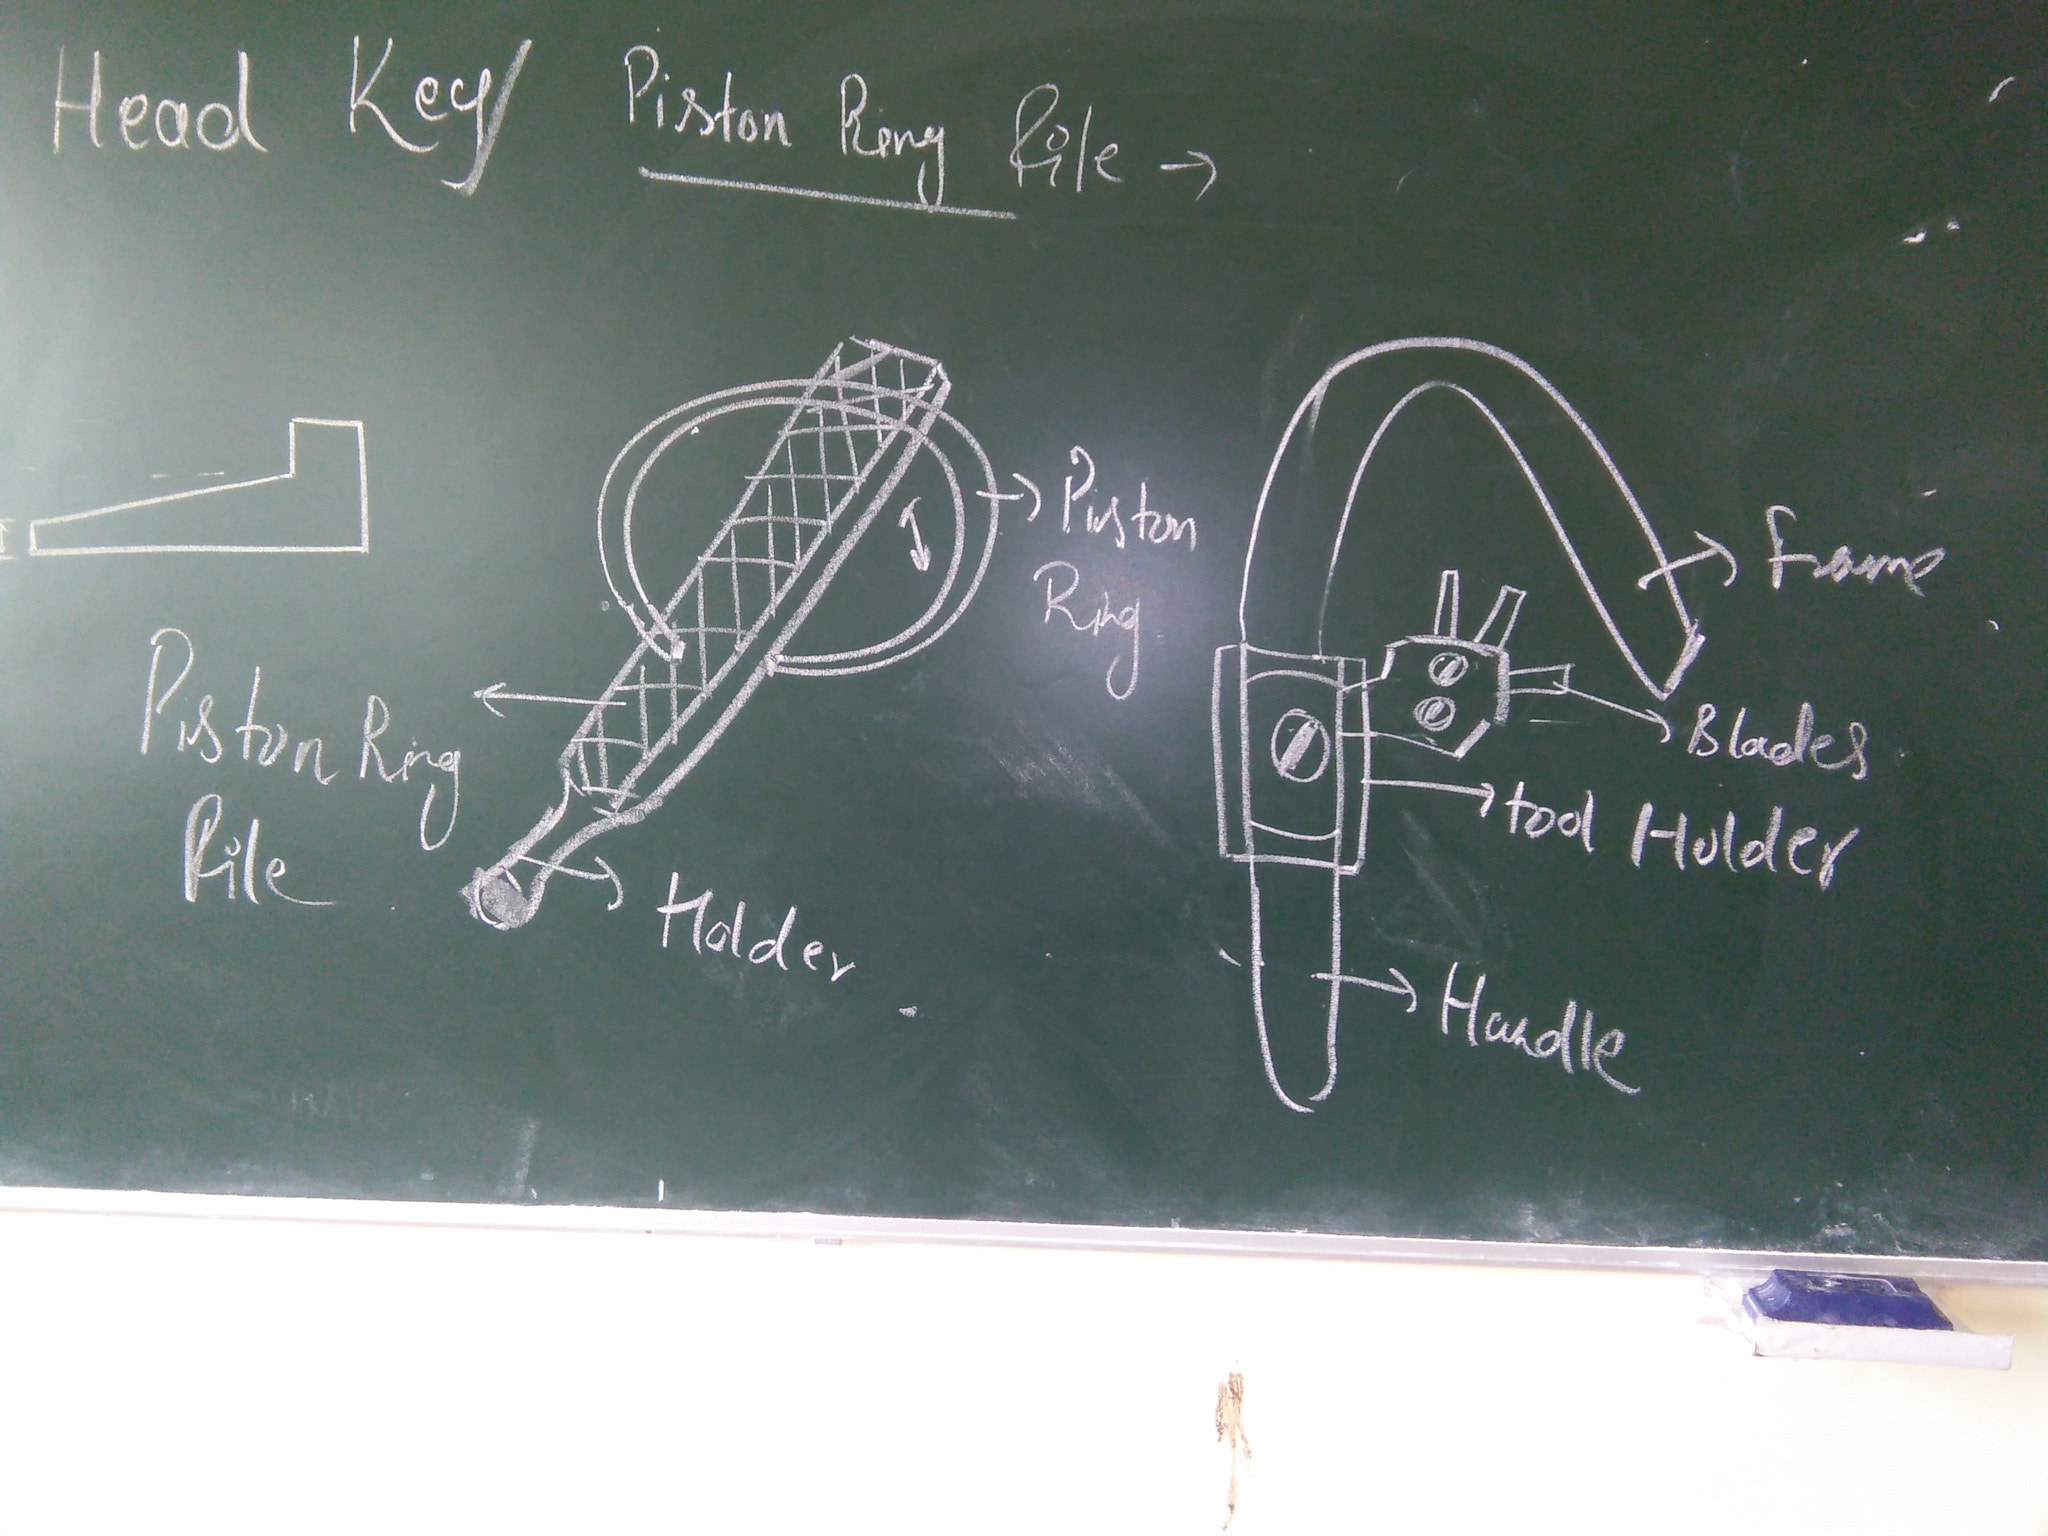 Head Key/
Piston Ring File →
Piston
Ring
Piston Ring
File
Holder
Frame
Blades
tool Holder
Handle